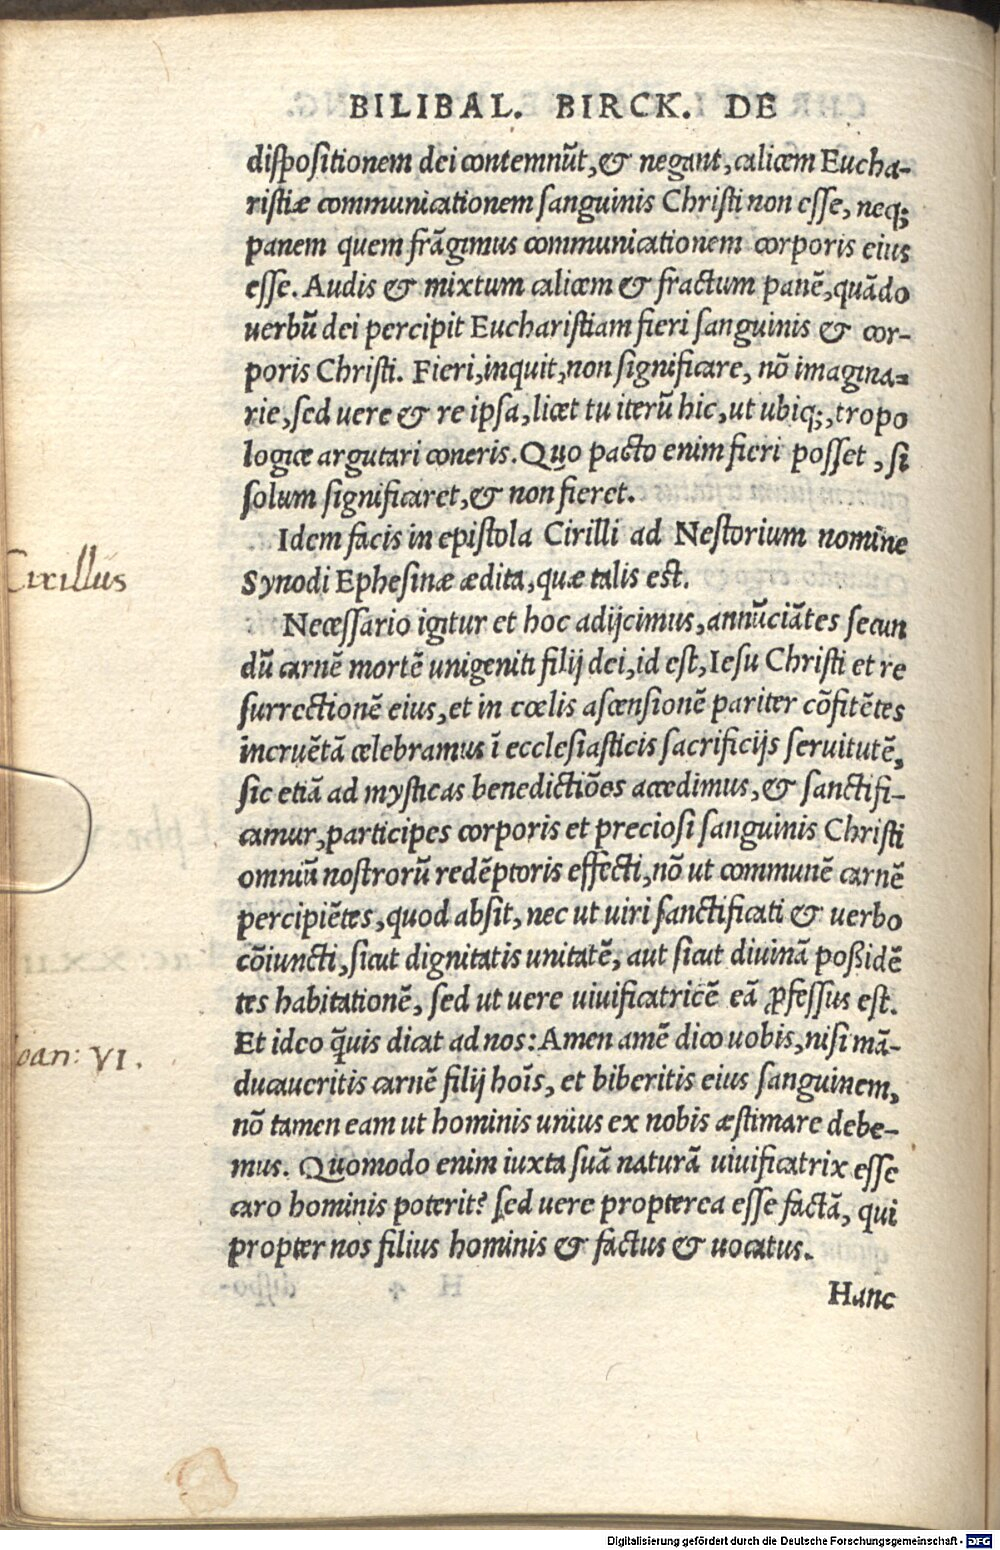 BILIBAL. BIRCK. DE
dispositionem dei contemnũt, & negant, calicem Eucha-
ristiæ communicationem sanguinis Christi non esse, neq;
panem quem frãgimus communicationem corporis eius
esse. Audis & mixtum calicem & fractum panẽ, quãdo
uerbũ dei percipit Eucharistiam fieri sanguinis & cor-
poris Christi. Fieri, inquit, non significare, nõ imagina-
rie, sed uere & re ipsa, licet tu iterũ hic, ut ubiq;, tropo
logice argutari coneris. Quo pacto enim fieri posset, si
solum significaret, & non fieret.
Idem facis in epistola Cirilli ad Nestorium nomine
Cirillus
Synodi Ephesinæ ædita, quæ talis est.
Necessario igitur et hoc adijcimus, annũciãtes secun
dũ carnẽ mortẽ unigeniti filij dei, id est, Iesu Christi et re
surrectionẽ eius, et in cœlis ascensionẽ pariter cõfitẽtes
incruẽtã celebramus ĩ ecclesiasticis sacrificijs seruitutẽ,
sic etiã ad mysticas benedictiões accedimus, & sanctifi-
camur, participes corporis et preciosi sanguinis Christi
omniũ nostrorũ redẽptoris effecti, nõ ut communẽ carnẽ
percipiẽtes, quod absit, nec ut uiri sanctificati & uerbo
cõiuncti, sicut dignitatis unitatẽ, aut sicut diuinã poßidẽ
tes habitationẽ, sed ut uere uiuificatricẽ eã ꝓfessus est.
Et ideo q̃uis dicat ad nos: Amen amẽ dico uobis, nisi mã-
Ioan: VI.
ducaueritis carnẽ filij hoĩs, et biberitis eius sanguinem,
nõ tamen eam ut hominis unius ex nobis æstimare debe-
mus. Quomodo enim iuxta suã naturã uiuificatrix esse
caro hominis poterit? sed uere propterea esse factã, qui
propter nos filius hominis & factus & uocatus.
Hanc
Digitalisierung gefördert durch die Deutsche Forschungsgemeinschaft - DFG